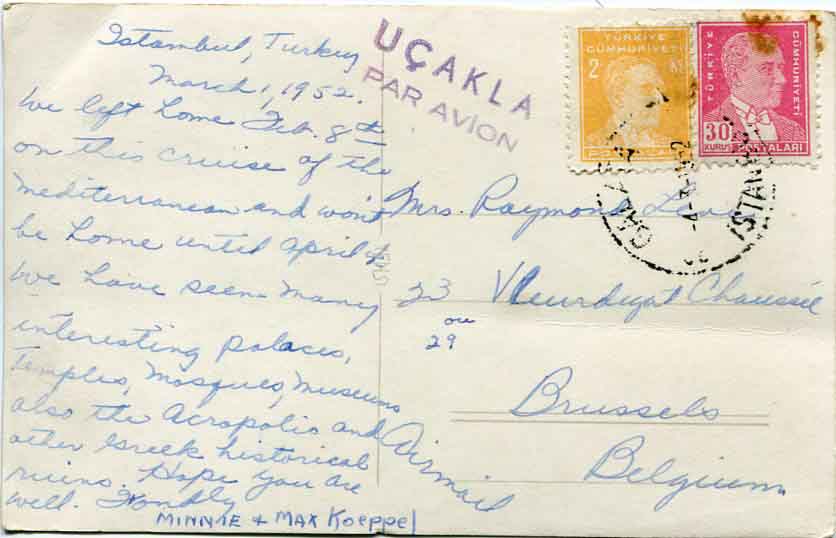 Istambul, Turkey
March 1, 1952.
We left home Feb. 8th
on this cruise of the
Mediterranean and wont
be home until April
We have seen many
interesting palaces,
temples, mosques, museums
also the Acropolis and
other Greek historical
ruins. Hope you are
well. Fondly
MINNIE + MAX Koeppel
UÇAKLA
PAR AVION
TÜRKİYE
CÜMHURİYETİ
2
TÜRKİYE
CÜMHURİYETİ
30
KURUŞ POSTALARI
GALATA
İSTANBUL
Mrs. Raymond
23 Vleurdgat Chaussée
ou
29
Brussels
Airmail
Belgium